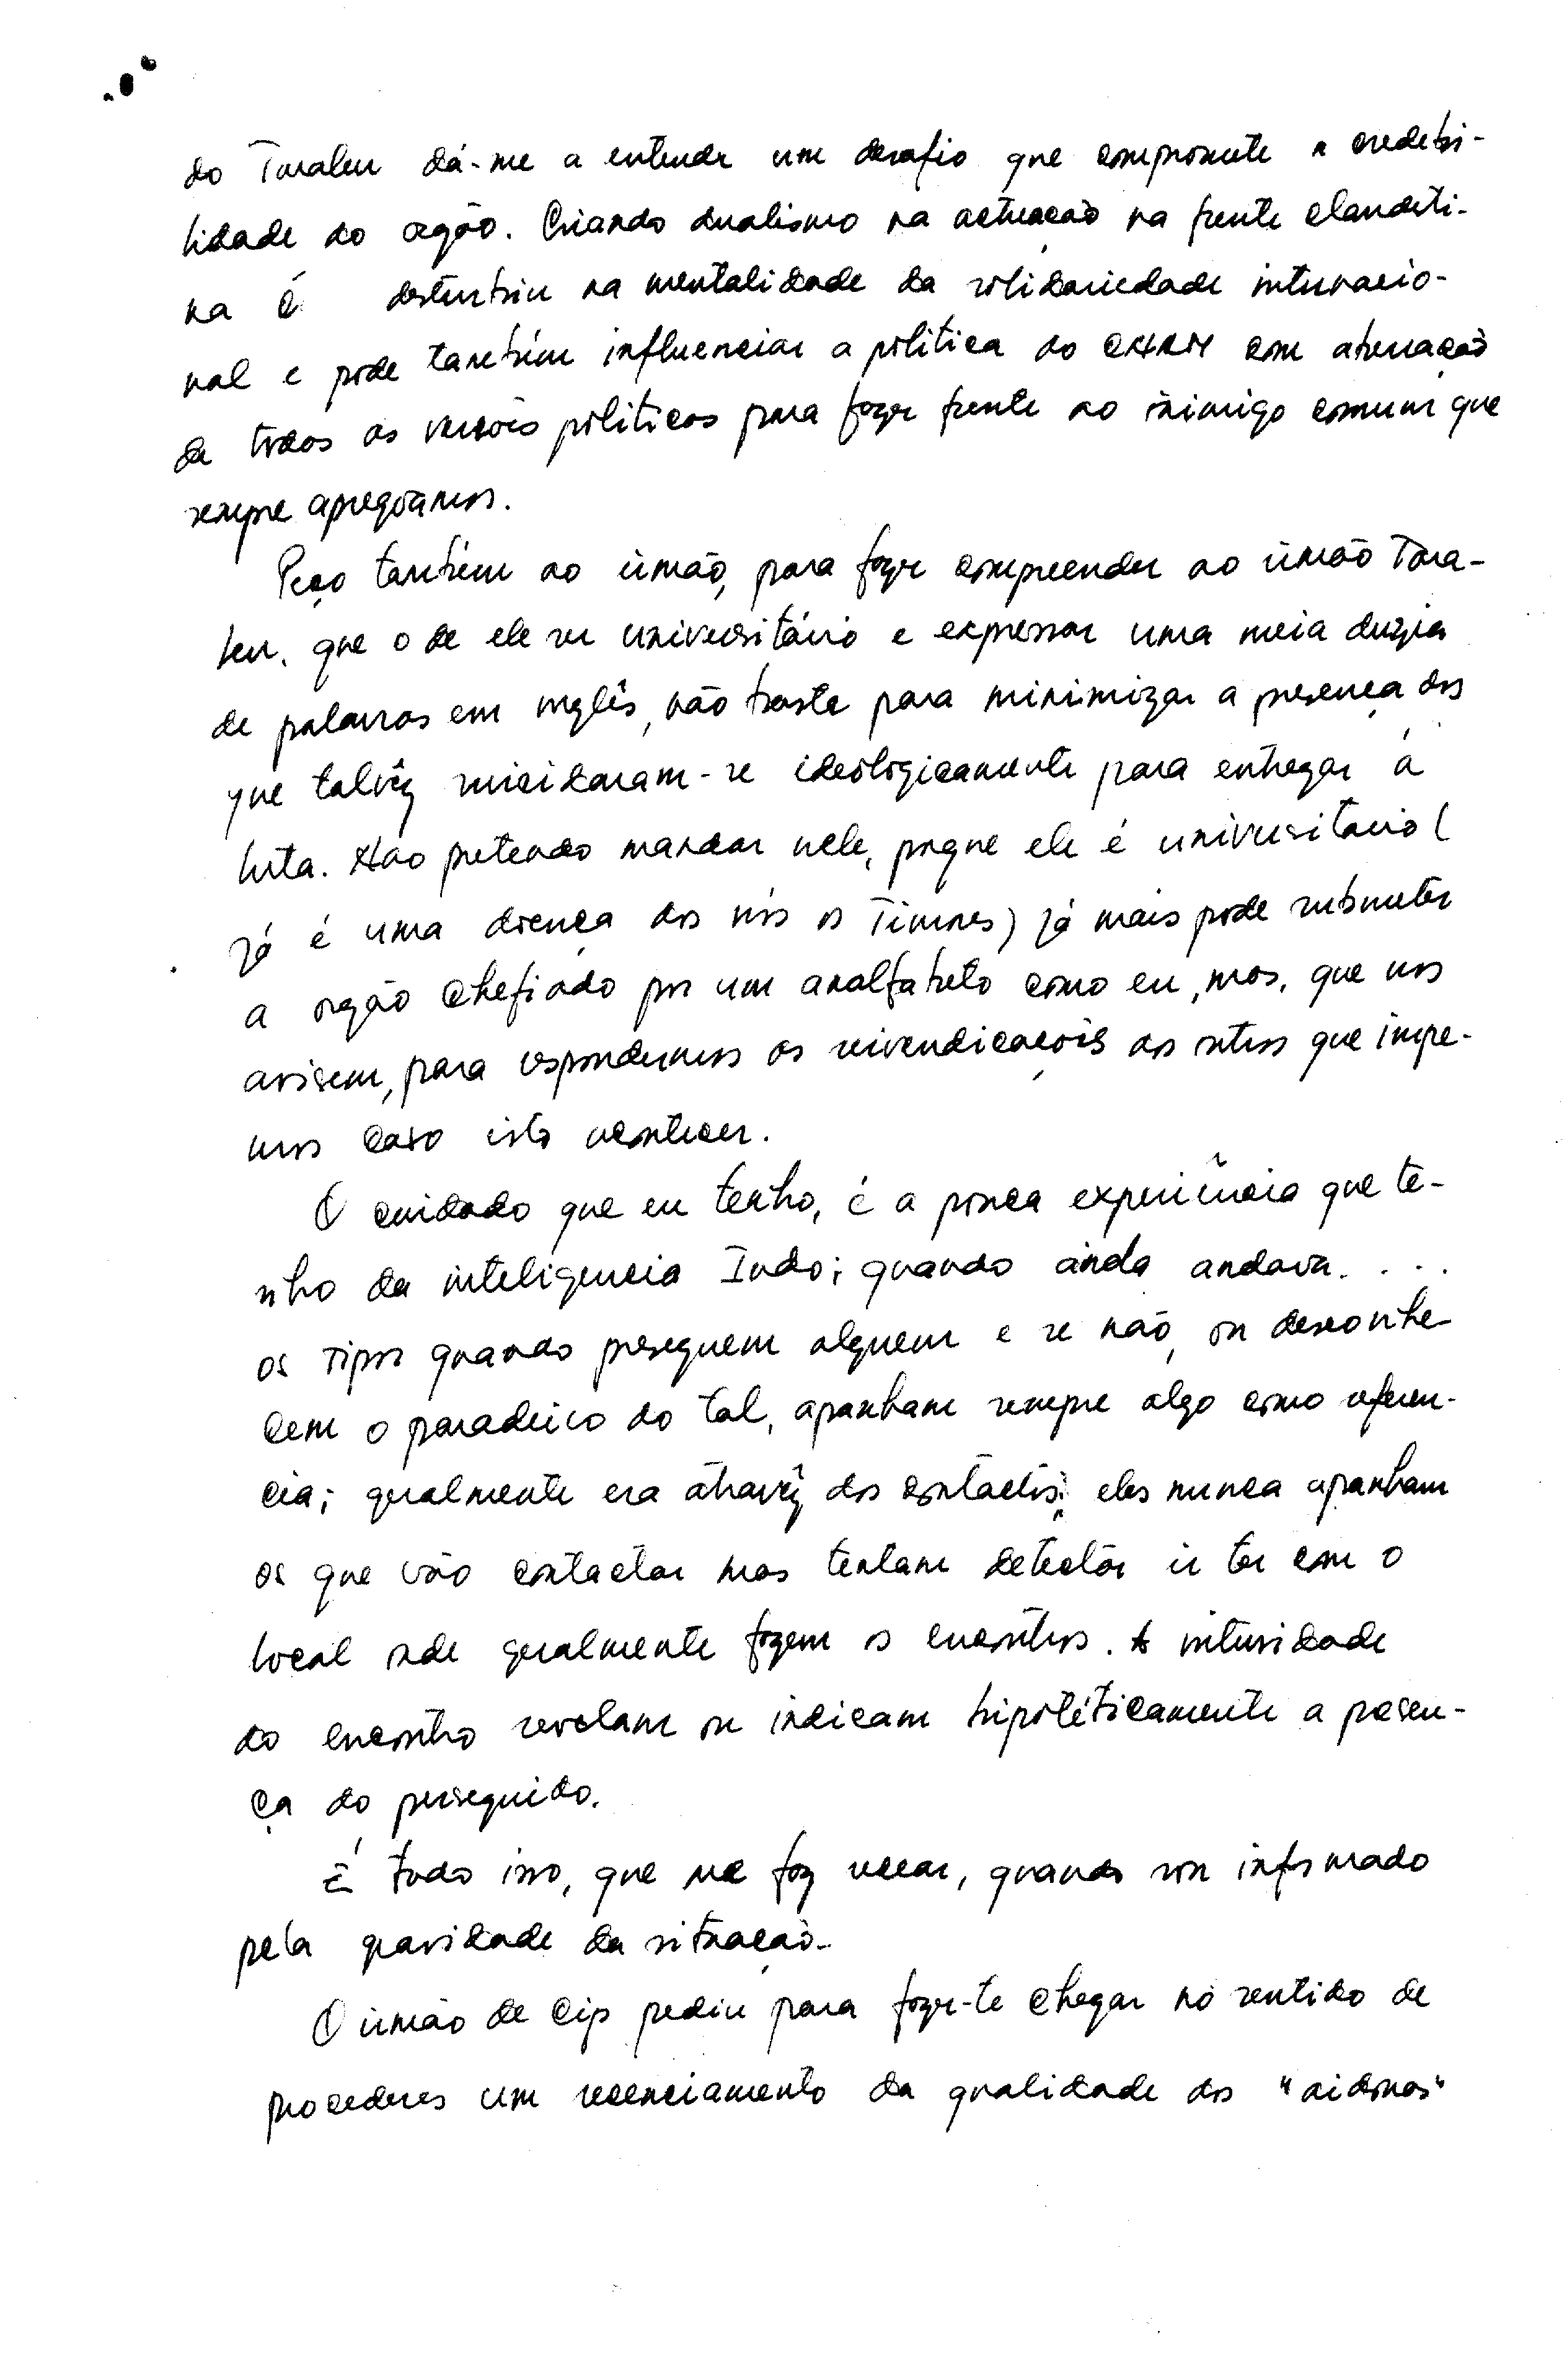 do Taraleu dá-me a entender um desafio que compromete a credebi-
lidade do orgão. Criando dualismo na actuação na frente clandeti-
na é desturbiu na mentalidade da solidariedade internacio-
nal e pode também influenciar a politica do CNRM com
de todos os politicos para fazer frente ao inimigo comum que
sempre apregoamos.
Peço também ao irmão, para fazer compreender ao irmão Tara-
leu. que o de ele ser universitário e expressar uma meia duzia
de palavras em inglês, não baste para minimizar a presença dos
que talvêz suicidaram-se ideologicamente para entregar á
luta. Não pretendo mandar nele, porque ele é universitario (
já é uma doença dos nós os Timores) já mais pode submeter
a orgão chefiado por um analfabeto como eu, mas, que nos
avisem, para respondermos as reivendicaçois dos outros que impe-
mos caso isto acontecer.
O cuidado que eu tenho, é a pouca experiência que te-
nho da inteligencia Indo; quando ainda andava. . . .
os tipos quando preseguem alguem e se não, ou desconhe-
cem o paradeiro do tal, apanham sempre algo como referen-
cia; geralmente era através dos contactos; eles nunca apanham
os que vão contactar mas tentam detectar ir ter com o
local onde geralmente fazem os encontros. A intensidade
do encontro revelam ou indicam hipotéticamente a presen-
ça do perseguido.
É tudo isso, que me faz recear, quando sou informado
pela gravidade da situação.
O irmão de Cip pediu para fazer-te chegar no sentido de
procederes um recenciamento da qualidade dos "aidonas"